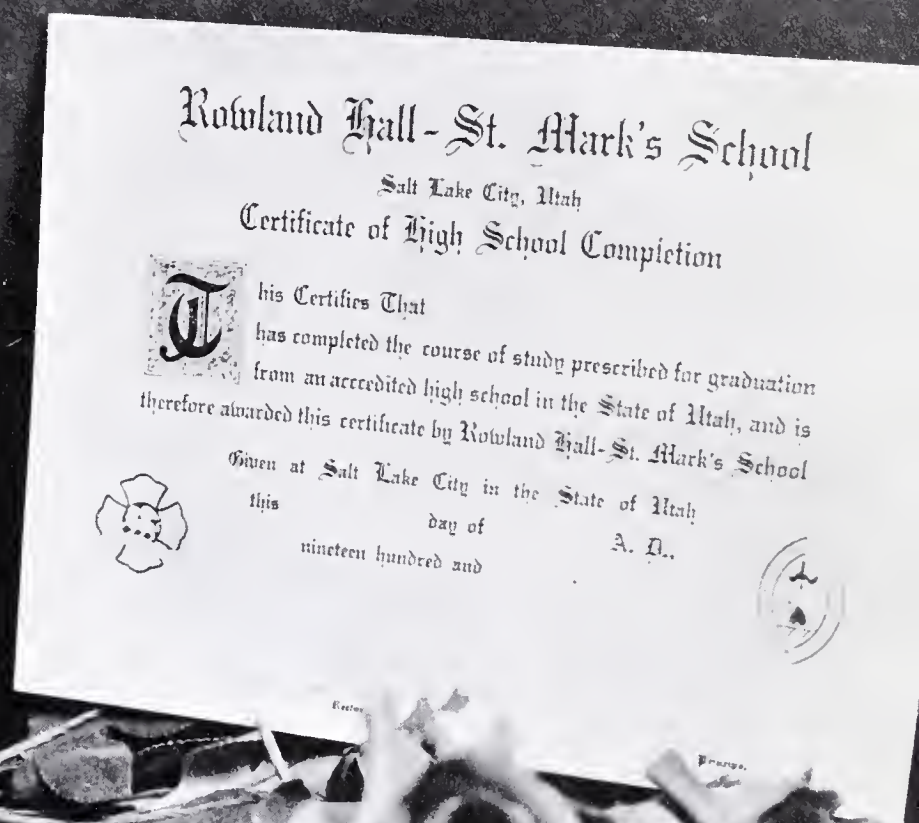 Rowland Hall-St. Mark's School
Salt Lake City, Utah
Certificate of High School Completion
This Certifies That
has completed the course of study prescribed for graduation
from an accredited high school in the State of Utah, and is
therefore awarded this certificate by Rowland Hall-St. Mark's School
Given at Salt Lake City in the State of Utah
this day of A. D.,
nineteen hundred and